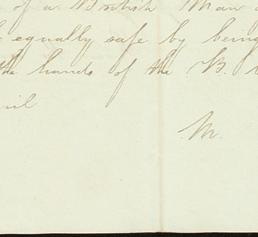 of a British Man
equally safe by being
the hands of the B.
M.